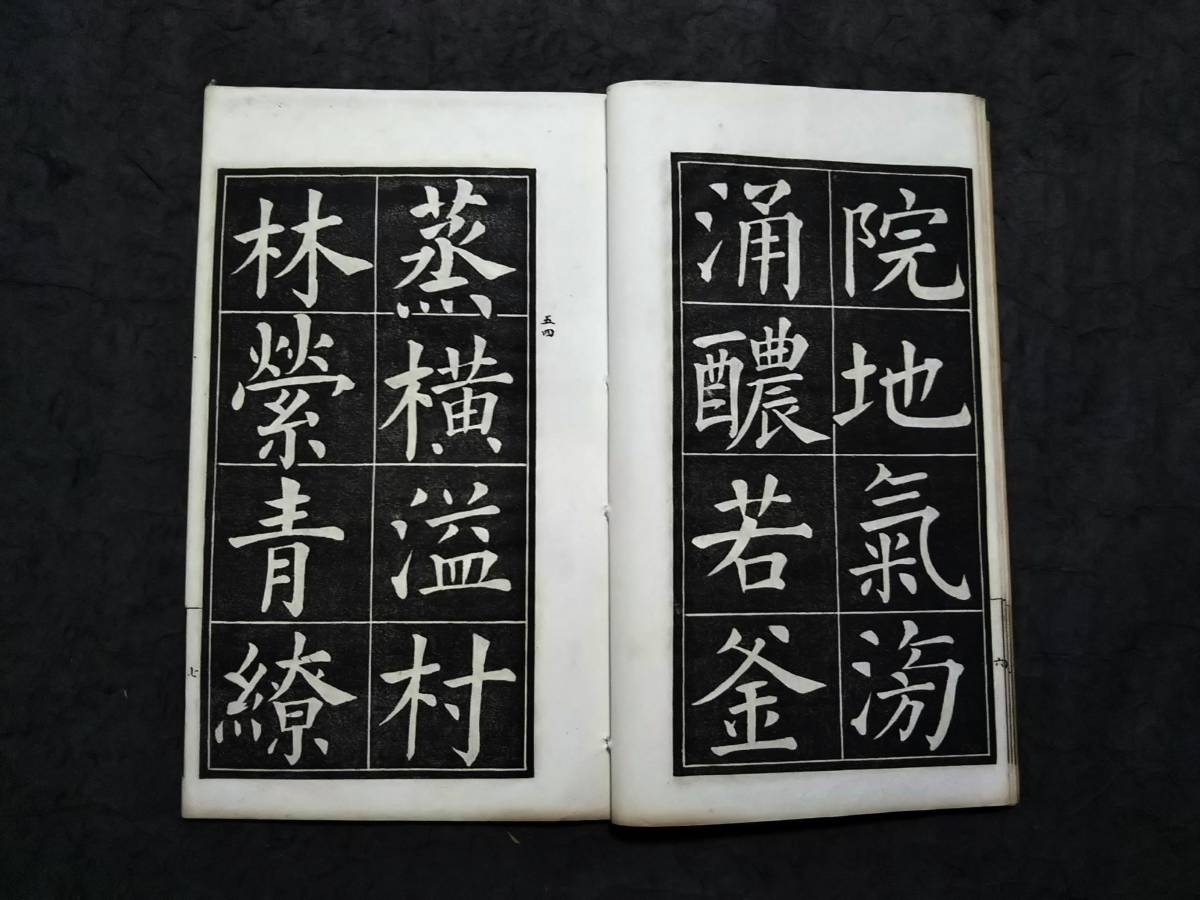 院地氣滂
涌醲若釜
六
五四
蒸橫溢村
林縈青繚
七